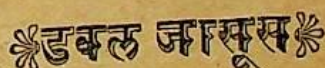 डबल जासूस